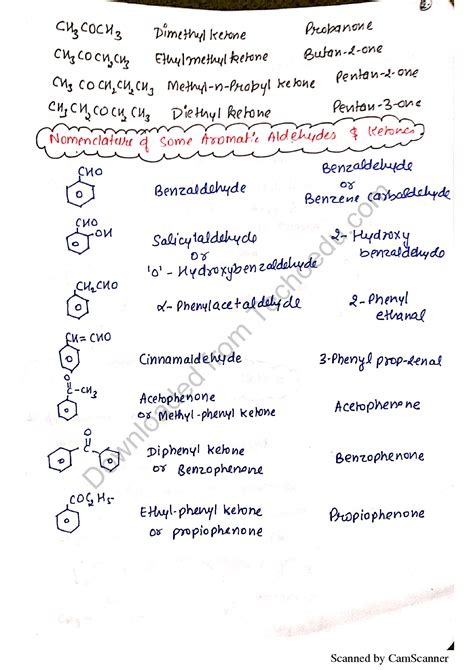 CH₃COCH₃ Dimethyl ketone Probanone
CH₃COCH₂CH₃ Ethylmethyl ketone Butan-2-one
CH₃COCH₂CH₂CH₃ Methyl-n-Probyl ketone Pentan-2-one
CH₃CH₂COCH₂CH₃ Diethyl ketone Pentan-3-one
Nomenclature of Some Aromatic Aldehydes & Ketones
CHO Benzaldehyde Benzaldehyde
or
Benzene carbaldehyde
CHO
OH Salicylaldehyde 2-Hydroxy
or benzaldehyde
'o'-Hydroxybenzaldehyde
CH₂CHO α-Phenylacetaldehyde 2-Phenyl
ethanal
CH=CHO Cinnamaldehyde 3-Phenyl prop-2enal
O
C-CH₃ Acetophenone Acetophenone
or Methyl-phenyl ketone
O
C Diphenyl ketone Benzophenone
or Benzophenone
COC₂H₅ Ethyl-phenyl ketone Propiophenone
or propiophenone
Downloaded from Techcede.com
Scanned by CamScanner